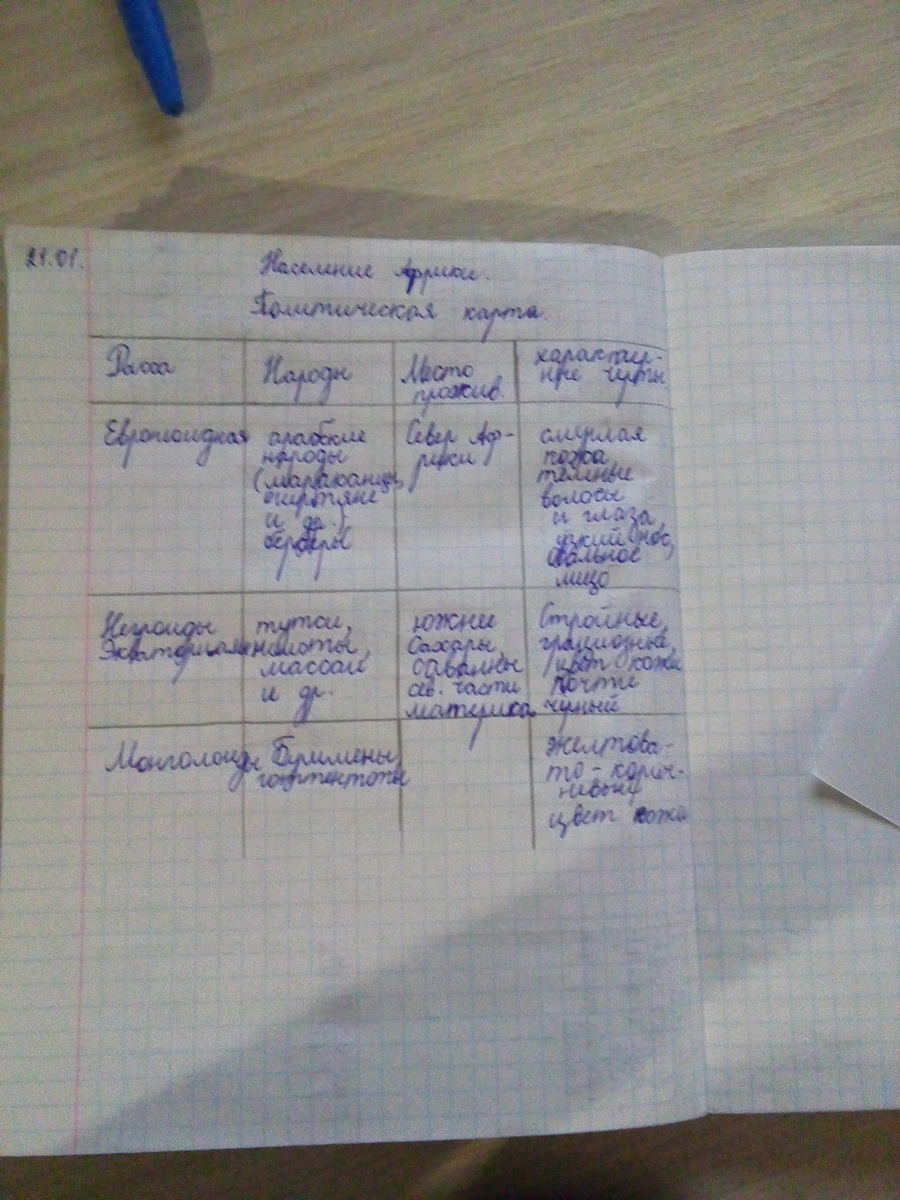 21.01.
Население Африки.
Политическая карта.
Расса
Народы
Место
прожив.
характер-
ные черты
Европеоидная
арабские
народы
(мараканцы,
египтяне
и др.)
берберы
Север Аф-
рики
смуглая
кожа
темные
волосы
и глаза,
узкий нос,
овальное
лицо
Негроиды
Экваториальн
тутси,
нилоты,
массаи
и др.
южнее
Сахары,
саванны
сев. части
материка
Стройные,
грациозные,
цвет кожи
почти
черный
Монголоиды
Бушмены,
готтентоты
желтова-
то-корич-
невый
цвет кожи